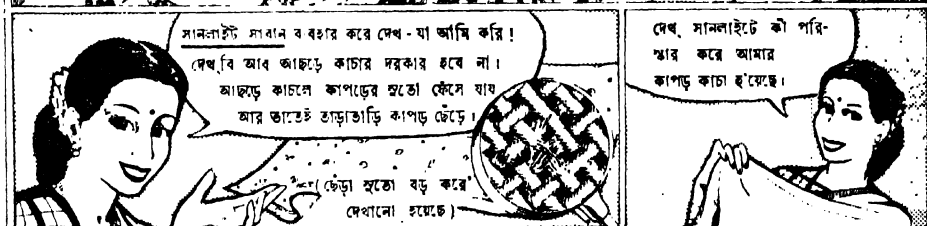 সানলাইট সাবান ব্যবহার করে দেখ - যা আমি করি!
দেখবি আর আছড়ে কাচার দরকার হবে না।
আছড়ে কাচলে কাপড়ের সুতো ফেঁসে যায়
আর তাতেই তাড়াতাড়ি কাপড় ছেঁড়ে।
(ছেঁড়া সুতো বড় করে
দেখানো হয়েছে)
দেখ্, সানলাইটে কী পরি-
ষ্কার করে আমার
কাপড় কাচা হ'য়েছে।